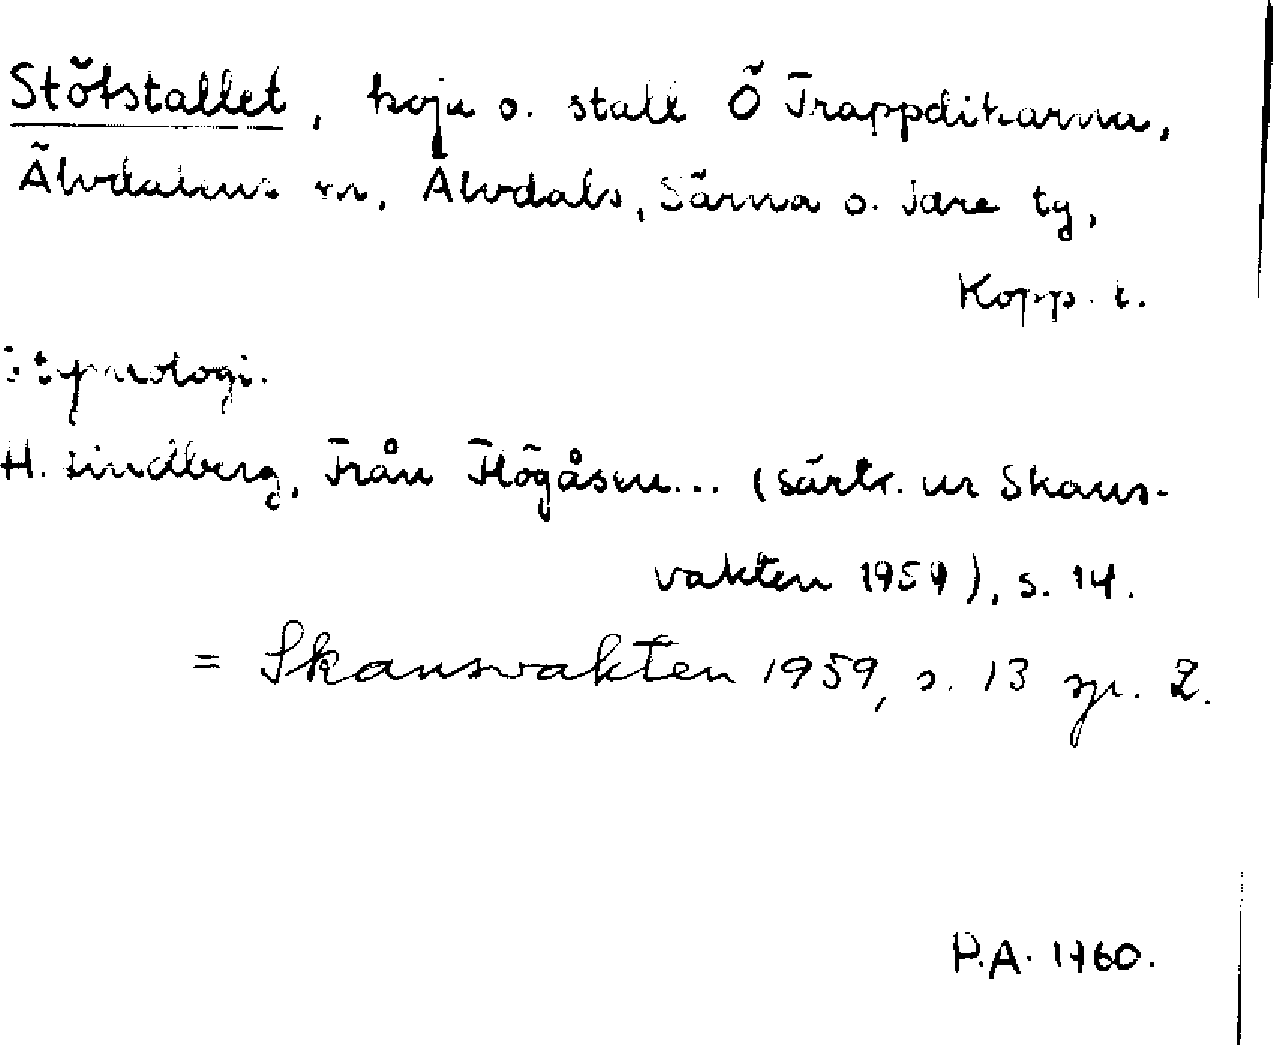 Stötstallet, koja o. stall Ö Trappdikarna,
Älvdalens sn, Älvdals, Särna o. Idre tg,
Kopp. l.
Etymologi.
H. Lindberg, Från Flögåsen... (särtr. ur Skans-
vakten 1959), s. 14.
= Skansvakten 1959, s. 13 sp. 2.
P.A. 1960.